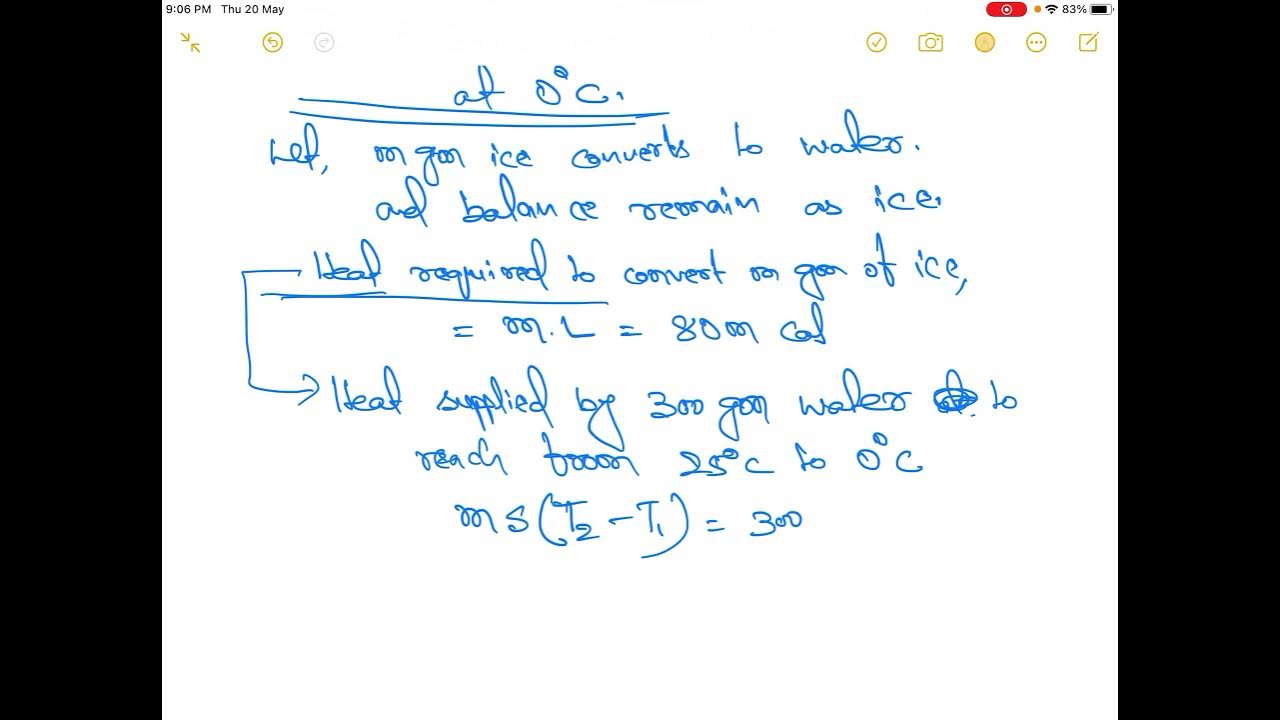 9:06 PM Thu 20 May 83%
at 0°C.
Let, m gm ice converts to water.
and balance remain as ice.
Heat required to convert m gm of ice,
= m.L = 80m cal
Heat supplied by 300 gm water to
reach from 25°C to 0°C
ms(T₂-T₁) = 300